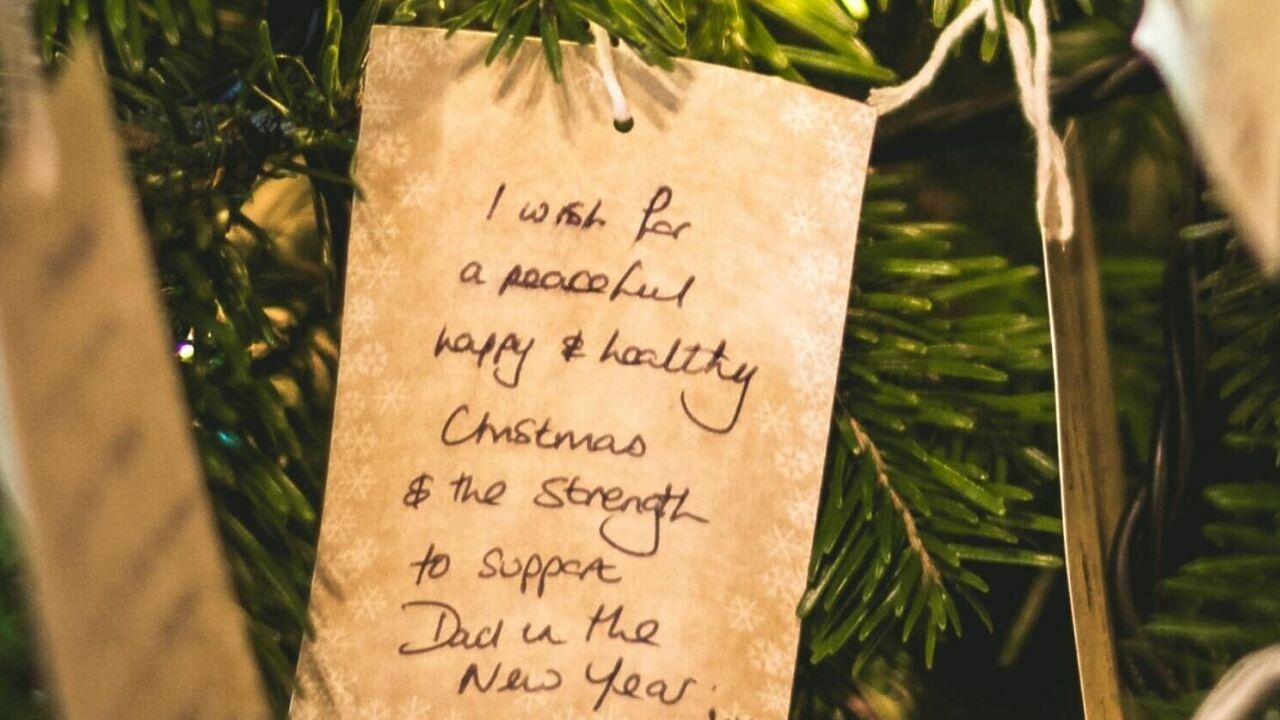 I wish for
a peaceful
happy & healthy
Christmas
& the Strength
to support
Dad in the
New Year.